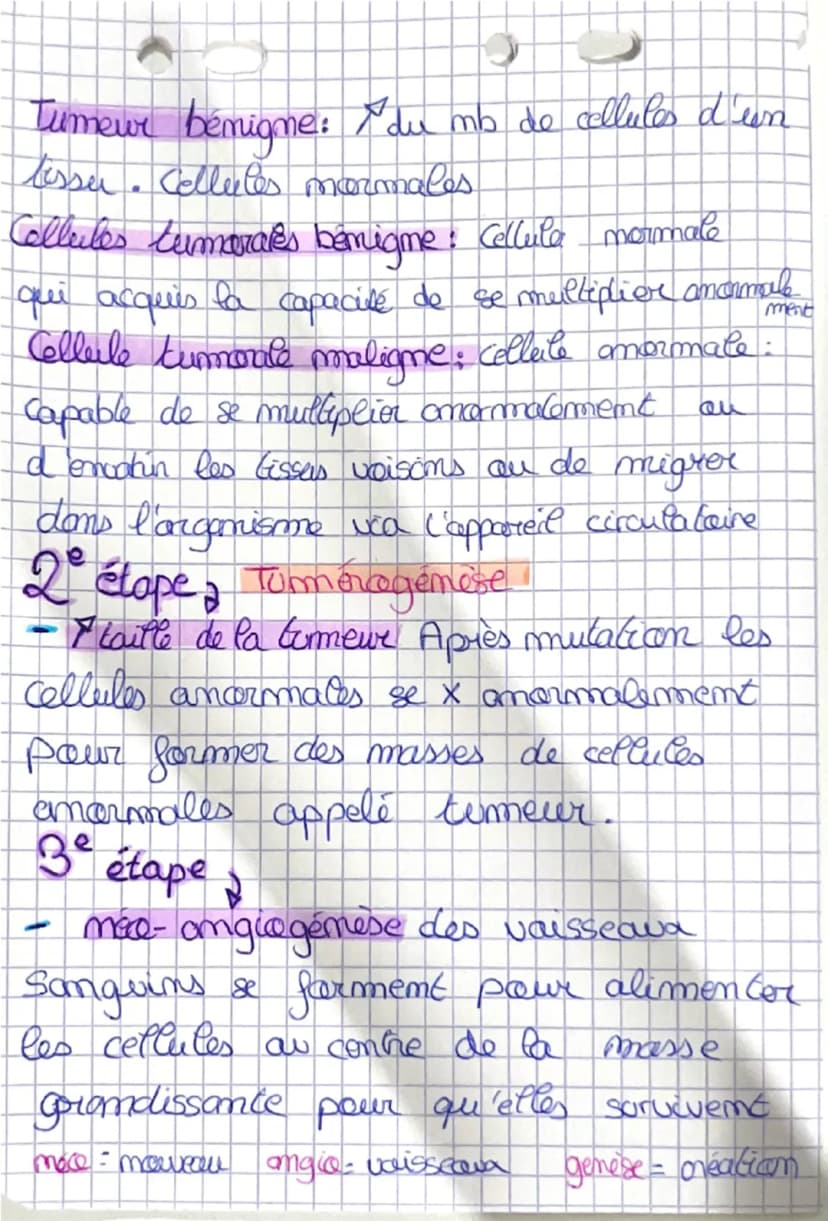 Tumeur bénigne: ↗ du nb de cellules d'un
tissu. Cellules normales
Cellules tumorales bénigne: Cellule normale
qui acquis la capacité de se multiplier anormale
ment
Cellule tumorale maligne: cellule anormale:
Capable de se multiplier anormalement ou
d'envahir les tissus voisins ou de migrer
dans l'organisme via l'appareil circulatoire
2e étape → Tumérogénèse
- ↗ taille de la tumeur Après mutation les
cellules anormales se x anormalement
pour former des masses de cellules
anormales appelé tumeur.
3e étape ↓
- néo-angiogénèse des vaisseaux
Sanguins se forment pour alimenter
les cellules au centre de la masse
grandissante pour qu'elles survivent
néo = nouveau angio = vaisseaux genèse = création